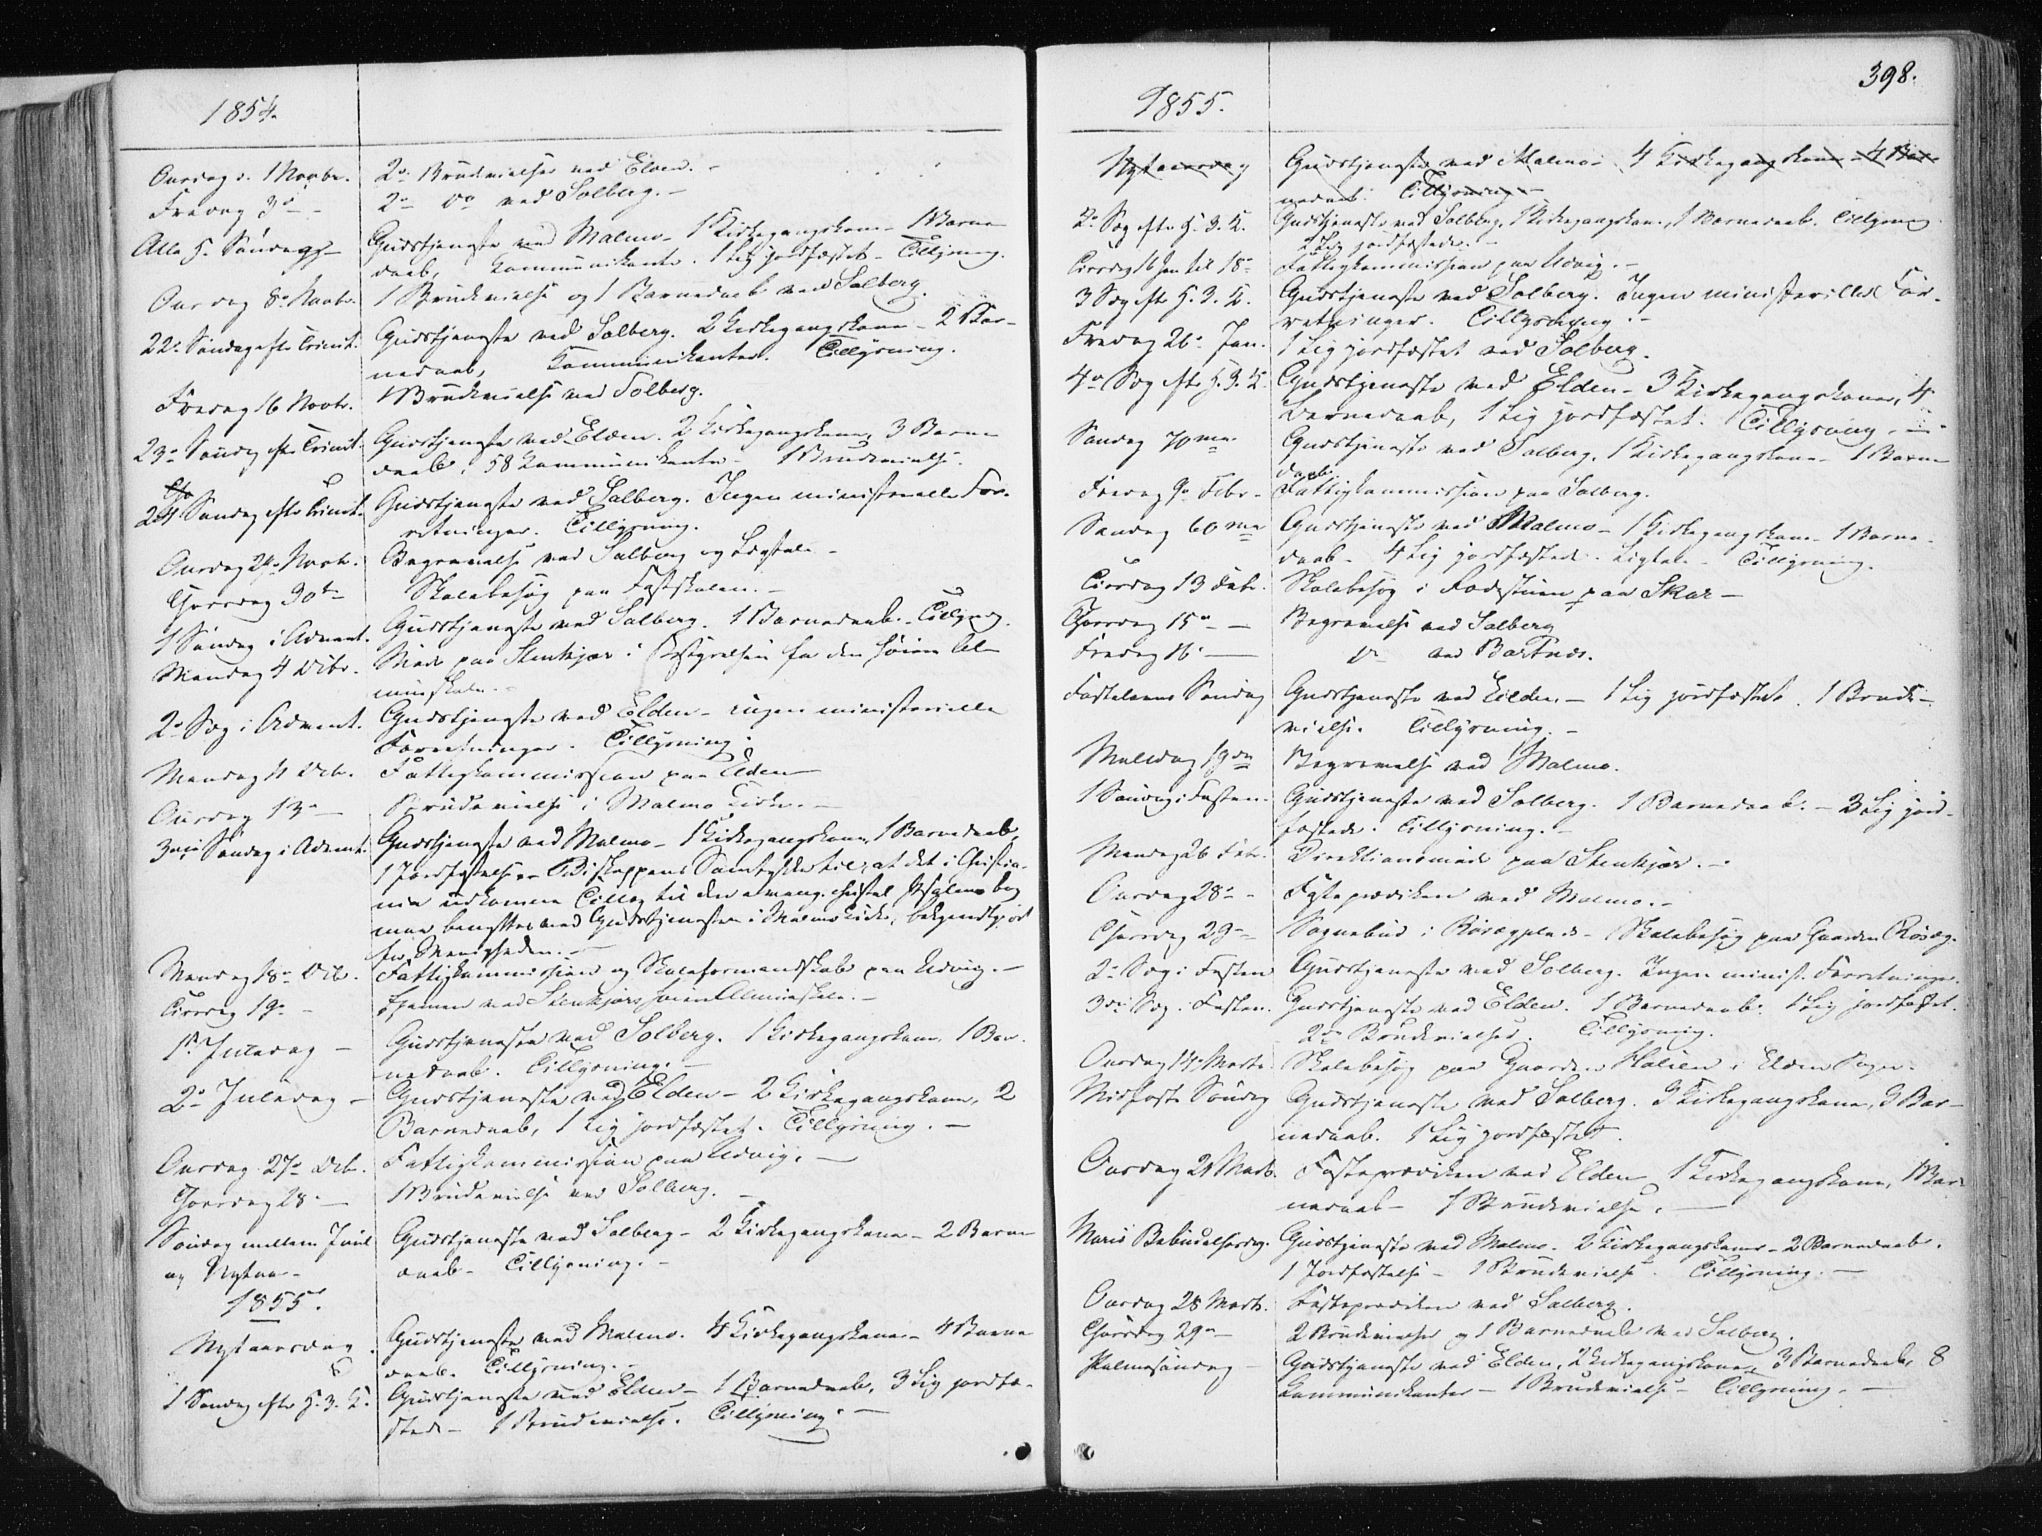 1854.
Onsdag d. 1 Novbr. 2de Brudevielser ved Elden. -
Fredag 3de - 2de do ved Solberg. -
Alle H. Søndag - Gudstjeneste ved Malmo - 1 Kirkegangskone - 1 Barne
daab, Kommunikanter. 1 Lig jordfæstet - Tillysning.
Onsdag 8de Novbr. 1 Brudevielse og 1 Barnedaab ved Solberg.
22de Søndag efter Trinit. Gudstjeneste ved Solberg. 2 Kirkegangskoner - 2 Bar-
nedaab, Kommunikanter. Tillysning.
Fredag 16 Novbr. 1 Brudevielse ved Solberg.
23de Søndag efter Trinit. Gudstjeneste ved Elden. 2 Kirkegangskoner, 3 Barne
daab, 58 Kommunikanter - 1 Brudevielse.
24 Søndag efter Trinit. Gudstjeneste ved Solberg. Ingen ministerielle For-
retninger. Tillysning.
Onsdag 29de Novbr. Begravelse ved Solberg og Ligtale -
Torsdag 30te Skolebesøg paa Fastskolen. -
1 Søndag i Advent. Gudstjeneste ved Solberg. 1 Barnedaab. Tillysng.
Mandag 4 Decbr. Møde paa Stenkjær i Bestyrelsen for den høiere Al-
mueskole. -
2de Søg i Advent. Gudstjeneste ved Elden - ingen ministerielle
Forretninger. Tillysning.
Mandag 11 Decbr. Fattigkommission paa Elden
Onsdag 13de - Brudevielse i Malmo Kirke. -
3die Søndag i Advent. Gudstjeneste ved Malmo - 1 Kirkegangskone, 1 Barnedaab,
1 Jordfæstelse - Biskoppens Samtykke til, at det i Christia-
nia udkomne Tillæg til den evang. christel. Psalmebog
maa benyttes ved Gudstjenesten i Malmo Kirke, bekjendtgjort
for Menigheden. -
Mandag 18de Decbr. Fattigkommission og Skoleformandskab paa Utvig. -
Tirsdag 19de - Examen ved Stenkjærs høiere Almueskole. -
1ste Juledag - Gudstjeneste ved Solberg. 1 Kirkegangskone, 1 Bar-
nedaab. Tillysning. -
2de Juledag - Gudstjeneste ved Elden - 2 Kirkegangskoner, 2
Barnedaab, 1 Lig jordfæstet. Tillysning. -
Onsdag 27de Decbr. Fattigkommission paa Utvig. -
Torsdag 28 - 1 Brudevielse ved Solberg. -
Søndag mellem Juul Gudstjeneste ved Solberg - 2 Kirkegangskoner - 2 Barne
og Nytaar - daab - Tillysning. -
1855.
Nytaarsdag. Gudstjeneste ved Malmo. 4 Kirkegangskoner - 4 Barne
daab. Tillysning. -
1 Søndag efter H. 3. K. Gudstjeneste ved Elden - 1 Barnedaab, 3 Lig jordfæ-
stede - 1 Brudevielse. Tillysning. -
398.
1855.
Nytaarsdag Gudstjeneste ved Malmo - 4 Kirkegangskoner - 4 Bar-
nedaab. Tillysning. -
2de Søg efter H. 3. K. Gudstjeneste ved Solberg, 1 Kirkegangskone, 1 Barnedaab. Tillysning
2 Lig jordfæstede. -
Tirsdag 16 Jan til 18de Fattigkommission paa Utvig. -
3 Søg efter H. 3. K. Gudstjeneste ved Solberg. Ingen ministerielle For-
retninger. Tillysning. -
Fredag 26de Jan. 1 Lig jordfæstet ved Solberg.
4de Søg efter H. 3. K. Gudstjeneste ved Elden - 3 Kirkegangskoner, 4
Barnedaab, 1 Lig jordfæstet. Tillysning. -
Søndag 70ma. Gudstjeneste ved Solberg, 1 Kirkegangskone - 1 Barne
daab.
Fredag 9de Febr - Fattigkommission paa Solberg.
Søndag 60ma Gudstjeneste ved Malmo - 1 Kirkegangskone - 1 Barne-
daab - 4 Lig jordfæstede. Ligtale - Tillysning.
Tirsdag 13 Febr. Skolebesøg i Fodestuen paa Skar -
Torsdag 15de - Begravelse ved Solberg
Fredag 16 - do ved Bartnæs.
Fastelavns Søndag Gudstjeneste ved Elden - 1 Lig jordfæstet. 1 Brude-
vielse. Tillysning. -
19de Begravelse ved Malmo.
1 Søndag i Fasten. Gudstjeneste ved Solberg. 1 Barnedaab. - 3 Lig jord-
fæstede. Tillysning. -
Mandag 26 Febr. Direktionsmøde paa Stenkjær. -
Onsdag 28de - Fasteprædiken ved Malmo. -
Torsdag 29de Sognebud i - Skolebesøg paa Gaarden
2de Søg i Fasten Gudstjeneste ved Solberg. Ingen minist. Forretninger.
3die Søg. i Fasten. Gudstjeneste ved Elden. 1 Barnedaab. 1 Lig jordfæstet.
2de Brudevielser. Tillysning.
Onsdag 14de Marts. Skolebesøg paa Gaarden i Elden Sogn.
Midfaste Søndag Gudstjeneste ved Solberg. 3 Kirkegangskoner, 3 Bar-
nedaab. 1 Lig jordfæstet.
Onsdag 21 Marts. Fasteprædiken ved Elden, 1 Kirkegangskone, 1 Bar-
nedaab - 1 Brudevielse. -
Mariæ Bebudelsesdag. Gudstjeneste ved Malmo - 2 Kirkegangskoner - 2 Barnedaab.
1 Jordfæstelse - 1 Brudevielse. Tillysning. -
Onsdag 28 Marts. Fasteprædiken ved Solberg.
Torsdag 29de 2 Brudevielser og 1 Barnedaab ved Solberg.
Palmesøndag - Gudstjeneste ved Elden, 2 Kirkegangskoner, 3 Barnedaab, 8
Kommunikanter - 1 Brudevielse - Tillysning. -